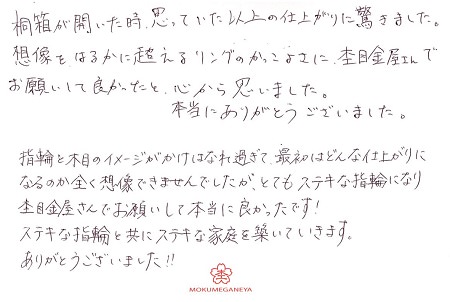 桐箱が開いた時、思っていた以上の仕上がりに驚きました。
想像をはるかに超えるリングのかっこよさに、杢目金屋さんで
お願いして良かったと、心から思いました。
本当にありがとうございました。
指輪と木目のイメージがかけはなれ過ぎて、最初はどんな仕上がりに
なるのか全く想像できませんでしたが、とてもステキな指輪になり
杢目金屋さんでお願いして本当に良かったです!
ステキな指輪と共にステキな家庭を築いていきます。
ありがとうございました!!
MOKUMEGANEYA